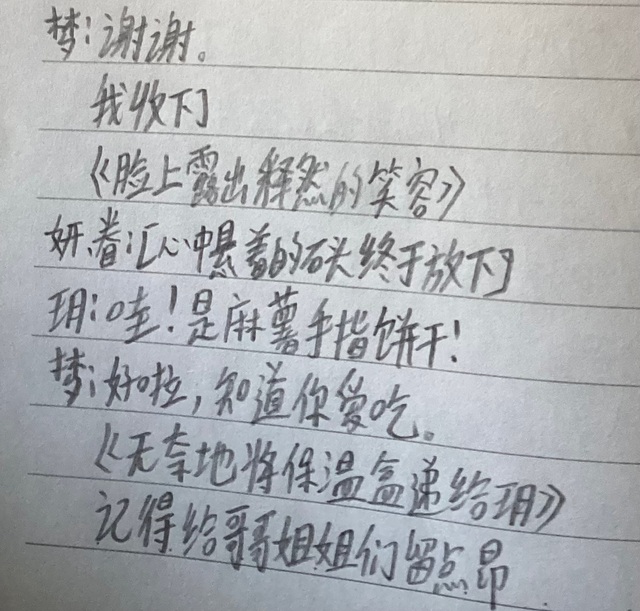 梦:谢谢。
我收下了
《脸上露出释然的笑容》
妍.眷:[心中悬着的石头终于放下了
玥:哇!是麻薯手指饼干!
梦:好啦,知道你爱吃。
《无奈地将保温盒递给玥》
记得给哥哥姐姐们留点昂